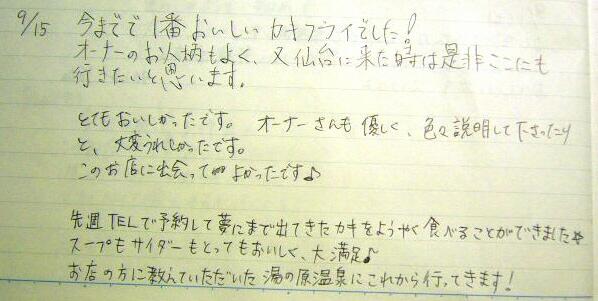 9/15 今までで1番おいしいカキフライでした!
オーナーのお人柄もよく、又仙台に来た時は是非ここにも
行きたいと思います。
とてもおいしかったです。オーナーさんも優しく、色々説明して下さったり
と、大変うれしかったです。
このお店に出会ってよかったです♪
先週TELで予約して夢にまで出てきたカキをようやく食べることができました☆
スープもサイダーもとってもおいしく、大満足♪
お店の方に教えていただいた湯の原温泉にこれから行ってきます!